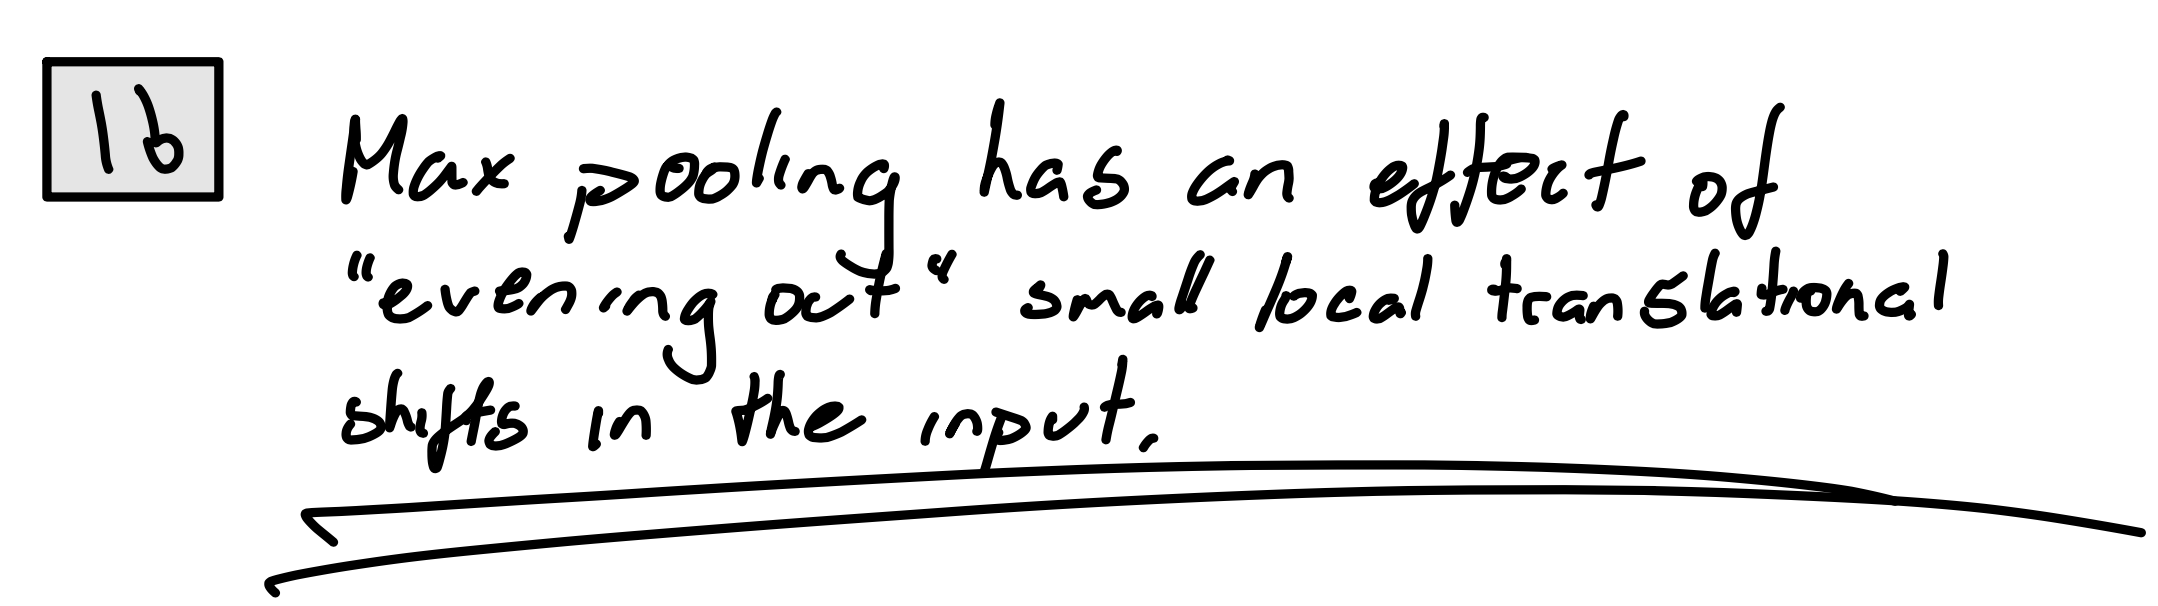 16
Max pooling has an effect of
"evening out" small local translational
shifts in the input.